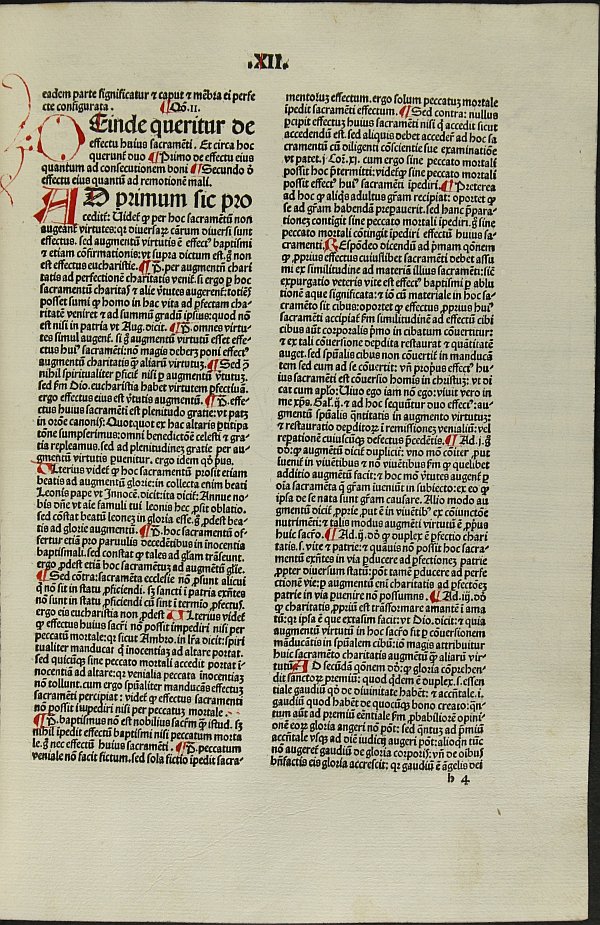 .XII.
eadem parte significatur ⁊ caput ⁊ mẽbra ei perfe
cte configurata. ¶ Qō.II.
DEinde queritur de
effectu huius sacramẽti. Et circa hoc
querunt̃ duo ¶ Primo de effectu eius
quantum ad consecutionem boni ¶ Secundo ð
effectu eius quantũ ad remotionẽ mali.
AD primum sic pro
cedit̃: Uidet̃ ꝙ per hoc sacramẽtũ non
augeant̃ virtutes: qꝛ diuersaꝝ cãrum diuersi sunt
effectus. sed augmẽtũ virtutis ẽ effectꝰ baptismi
⁊ etiam cõfirmationis: vt supra dictum est. ḡ non
est effectus eucharistie. ¶ P. per augmentũ chari
tatis ad perfectionẽ charitatis venit̃. si ergo ꝑ hoc
sacramentũ charitas̃ ⁊ alie v̑tutes augerent̃: totiẽs
posset sumi ꝙ homo in hac vita ad ꝑfectam cha⸗
ritatẽ veniret ⁊ ad summũ gradũ ipsius: quod nõ
est nisi in patria vt Aug. dicit. ¶ P. omnes virtu⸗
tes simul augent̃. si ḡ augmentũ virtutũ esset effe⸗
ctus huiꝰ sacramẽti: nõ magis deberꝫ poni effectꝰ
augmentũ charitatis ꝙ̃ aliarũ virtutuꝫ. ¶ Sed ꝯ̃
nihil spiritualiter ꝓficit̃ nisi ꝑ augmentũ v̑tutuꝫ.
sed ẜm Dio. eucharistia habet virtutem ꝑfectiuã.
ergo effectus eius est v̑tutis augmentũ. ¶ P. effe⸗
ctus huius sacramẽti est plenitudo gratie: vt patꝫ
in orõne canonis̃: Quotquot ex hac altaris ꝑticipa
tõne sumpserimus: omni benedictõne celesti ⁊ gra⸗
tia repleamus. sed ad plenitudineꝫ gratie per au⸗
gmentũ virtutis ꝑuenitur. ergo idem qð pus.
Ulterius videt̃ ꝙ hoc sacramentũ prosit etiam
beatis ad augmentũ glorie: in collecta enim beati
Leonis pape vt Innocẽ. dicit: ita dicit̃: Annue no⸗
bis dñe vt aĩe famuli tui leonis hec ꝓsit oblatio.
sed cõstat beatũ leoneꝫ in gloria esse. ḡ ꝓdest bea⸗
tis ad glorie augmentũ. ¶ P. hoc sacramentũ of⸗
fertur etiã pro paruulis decedẽtibus in inocẽtia
baptismali. sed constat ꝙ tales ad glam̃ trãseunt.
ergo ꝓdest etiã hoc sacramẽtuꝫ ad augmẽtũ glie̾.
¶ Sed cõtra: sacramẽta ecclesie nõ ꝓsunt alicui
q̃ nõ sit in statu ꝓficiendi. sꝫ sancti i patria exñtes
nõ sunt in statu ꝓficiendi cũ sint ĩ termio ꝓfectus̃.
ergo eis eucharistia non ꝓdest ¶ Ulterius videt̃
ꝙ effectus huius sacri̾ nõ possit impediri nisi per
peccatũ mortale: qꝛ sicut Ambro. in lr̃a dicit: spiri
tualiter manducat q̃ inocentiaꝫ ad altare portat.
sed quicũqꝫ sine peccato mortali accedit portat i̾⸗
nocentiã ad altare: qꝛ venialia peccata inocentiaꝫ
nõ tollunt. cum ergo sp̃ualiter manducãs effectuꝫ
sacramẽti percipiat: videt̃ ꝙ effectus sacramenti
nõ possit iu̾pediri nisi per peccatuꝫ mortale.
¶ P. baptismus nõ est nobilius sacrm̃ ꝙ̃ istud. sꝫ
nihil ipedit effectũ baptismi nisi peccatum morta
le. ḡ nec effectũ huius sacramẽti. ¶ P. peccatum
veniale nõ facit fictum. sed sola fictio ipedit sacra⸗
mentoꝝ effectum. ergo solum peccatuꝫ mortale
ipedit sacramẽti effectum. ¶ Sed contra: nullus
ꝑcipit effectuꝫ huius sacramẽti nisi q̃ accedit sicut
accedendũ est. sed aliquis debet acceder̃ ad hoc sa
cramentũ cũ diligenti cõscientie sue examinatiõe
vt patet. i. Coꝝ. xi. cum ergo sine peccato mortali
possit hoc p̃termitti: videt̃ ꝙ sine peccato mortali
possit effectꝰ huiꝰ sacramẽti ipediri. ¶ Preterea
ad hoc ꝙ aliq̃s adultus gr̃am recipiat: oportet ꝙ
se ad gr̃am habendã preparauerit. sed hanc p̃para⸗
tionez contigit sine peccato mortali ipediri. ḡ sine
peccato mortali cõtingit ipediri effectũ huius sa⸗
cramenti. Rẽspõdeo dicendũ ad p̃mam q̃onẽm
ꝙ ꝓprius effectus cuiuslibet sacramẽti debet assu
mi ex similitudine ad materiã illius sacramẽti: sic̃
expurgatio veteris vite est effectꝰ baptismi ꝑ ablu
tionẽ aque significata: ⁊ iõ cũ materiale in hoc sa⸗
cramẽto sit cibus: oportet ꝙ effectus ꝓprius huiꝰ
sacramẽti accipiat̃ ẜm similitudinẽ ad effectũ cibi
cibus aũt corporalis p̃mo in cibatum cõuertitur:
⁊ ex tali cõuersione deꝑdita restaurat ⁊ quãtitatẽ
auget. sed sp̃ualis cibus non cõuertit̃ in manducã
tem sed eum ad se cõuertit: vñ propus̃ effectꝰ hu⸗
ius sacramẽti est cõuersio homis̃ in christuꝫ: vt di
cat cum aplo̾: Uiuo ego iam nõ ego: viuit vero in
me xp̃s. Gal. ij. ⁊ ad hoc sequũtur duo effectꝰ: au⸗
gmentũ sp̃ualis q̃ntitatis in augmento virtutuꝫ:
⁊ restauratio deꝑditoꝝ ĩ remissiõne venialiũ: vel
reꝑationẽ cuiuscũqꝫ defectus p̃cedẽtis. ¶ Ad. j. ḡ
dõ: ꝙ augmentũ dicit̃ duplicit̃: vno mõ cõiter̃. put
iuenit̃ in viuẽtibus ⁊ nõ viuẽtibus ẜm ꝙ quelibet
additio augmẽtũ facit: ⁊ hoc mõ v̑tutes augent̃ ꝑ
oĩa sacramẽta q̃ gr̃am iueniũt in subiecto: ex eo ꝙ
ipsa de se nata sunt gr̃am causare. Alio modo au
gmentũ dicit̃ ꝓprie. put ẽ in viuẽtibꝰ ex cõiunctõe
nutrimẽti: ⁊ talis modus augmẽti virtutũ ẽ ꝓpus̃
huic sacro̾. ¶ Ad. ij. dõ ꝙ duplex ẽ ꝑfectio chari
tatis. s. vite ⁊ patrie: ⁊ quãuis nõ possit̃ hoc sacra⸗
mentũ exñtes in via ꝑducere ad ꝑfectionez patrie
ꝓpter diuersum statũ: põt tamẽ ꝑducere ad perfe
ctionẽ vie: ꝑ augmentũ eni̾ charitatis ad ꝑfectõez
patrie in via ꝑuenire nõ possumus. ¶ Ad. iij. dõ
ꝙ charitatis. ꝓpriũ est trãsformare amantẽ ĩ ama
tũ: qꝛ ipsa ẽ que extasim facit: vt Dio. dicit: ⁊ quia
augmentũ virtutũ in hoc sacro̾ fit ꝑ cõuersionem
mãducãtis in sp̃ualem cibũ: iõ magis attribuitur
huic sacramẽto charitatis augmẽtũ ꝙ̃ aliarũ vir⸗
tutũ AD secũdã q̃onem dõ: ꝙ gloria cõprehen⸗
dit sanctoꝝ premiũ: quod qdẽm ẽ duplex. s. essen
tiale gaudiũ qð de diuinitate habẽt: ⁊ accñtale. i.
gaudiũ quod habẽt de quocũqꝫ bono creato: q̃n⸗
tum aũt ad premiũ eẽntiale ẜm ꝓbabiliorẽ opini⸗
onẽ eoꝝ gloria augeri nõ põt: sed q̃ntuꝫ ad p̃miũ
accñtale vsqꝫ ad diẽ iudicij augeri põt: alioqñ tũc
nõ augeret̃ gaudiũ de gloria corporis̃: vñ de oibus̃
bñfactis eis gloria accrescit: qꝛ gaudiũ ẽ ãgelis dei
h 4